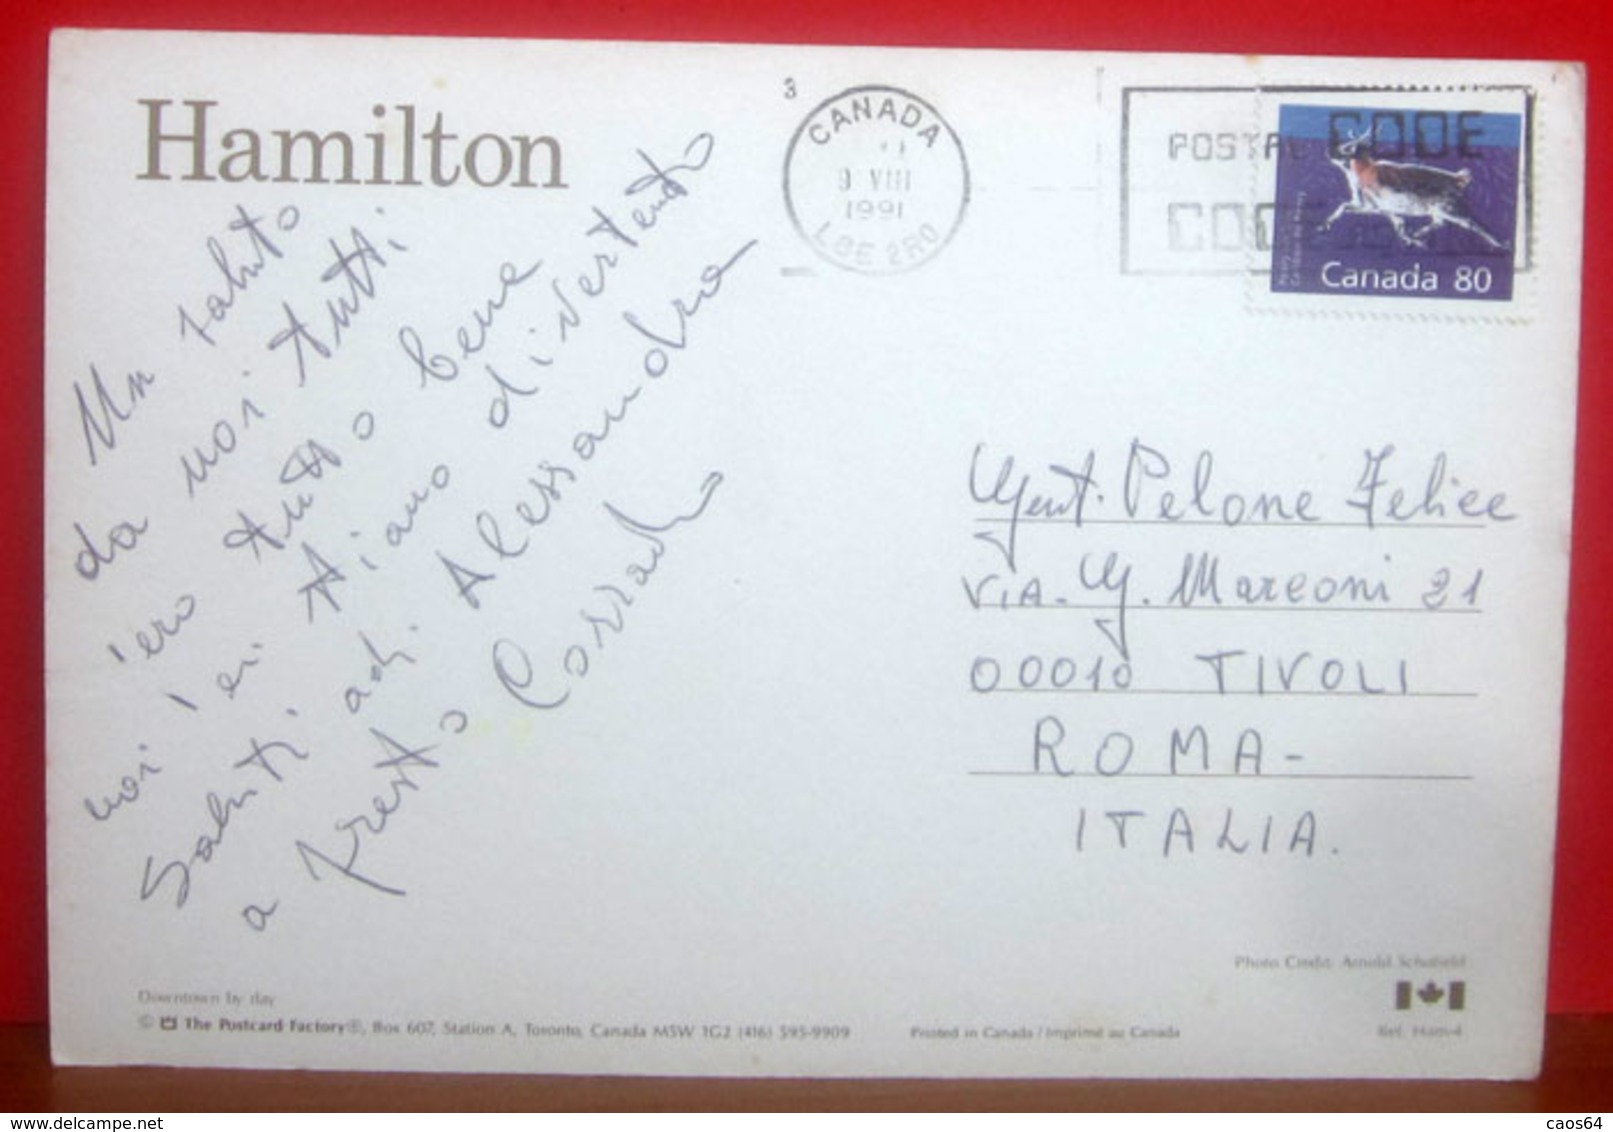 Hamilton
3
CANADA
9 VIII
1991
L8E 2R0
POSTAL CODE
CODE
Canada 80
Un saluto
da noi tutti
tutto bene
noi
divertendo
Saluti
Alessandra
a presto Corrado
Gent. Pelone Felice
VIA. G. Marconi 21
00010 TIVOLI
ROMA-
ITALIA.
Photo Credit: Arnold
Downtown by day
© The Postcard Factory®, Box 607, Station A, Toronto, Canada M5W 1G2 (416) 595-9909
Printed in Canada / Imprimé au Canada
Ref. Ham-4
www.delcampe.net
caos64